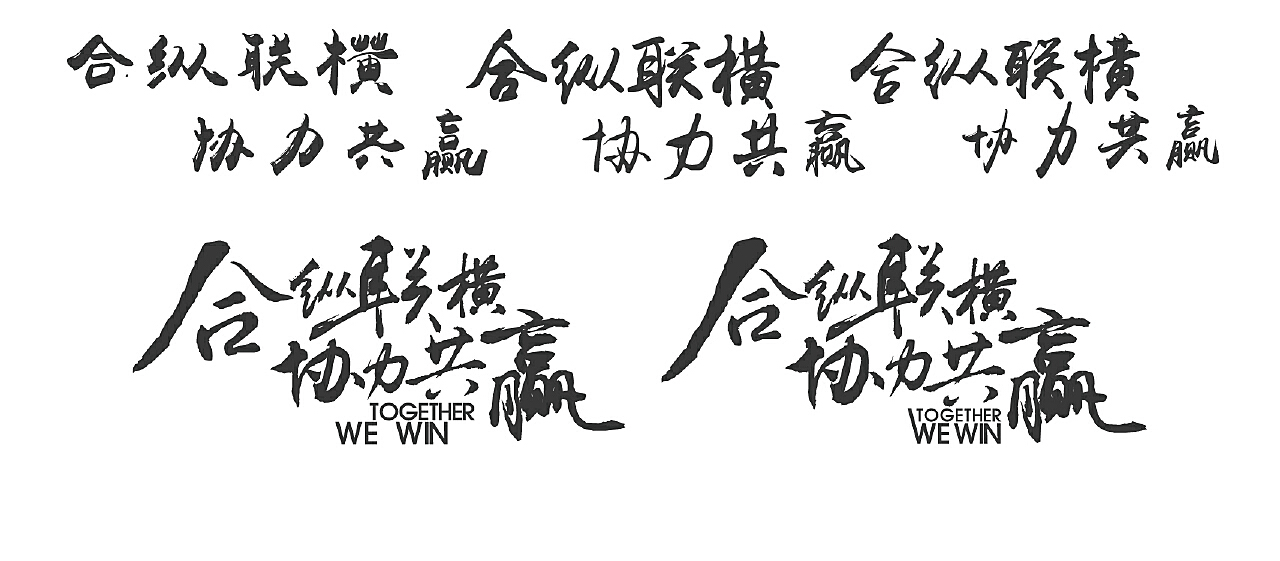 合纵联横
协力共赢
合纵联横
协力共赢
合纵联横
协力共赢
合纵联横
协力共赢
TOGETHER
WE WIN
合纵联横
协力共赢
TOGETHER
WE WIN